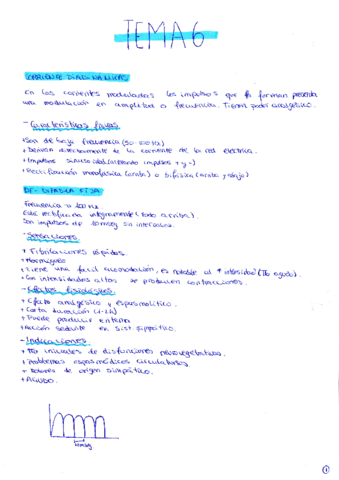 TEMA 6
CORRIENTE DIADINÁMICAS
En las corrientes moduladas los impulsos que la forman presenta
una modulación en amplitud o frecuencia. Tienen poder analgésico.
- Características físicas
+ Son de baja frecuencia (50-100 Hz)
+ Derivan directamente de la corriente de la red eléctrica.
+ Impulsos sinusoidales (alternando impulsos + y -)
+ Rectificación monofásica (arriba) o bifásica (arriba y abajo)
DF- DIFÁSICA FIJA
Frecuencia → 100 Hz
Está rectificada íntegramente (todo arriba).
Son impulsos de 10mseg sin intervalos.
- Sensaciones.
+ Fibrilaciones rápidas.
+ Hormigueo
+ Tiene una fácil acomodación, es notable al ↑ intensidad (Tto agudo).
+ Son intensidades altas se producen contracciones.
- Efectos fisiológicos.
+ Efecto analgésico y espasmolítico.
+ Corta duración (1-2h)
+ Puede producir eritema
+ Acción sedante en Sist simpático.
- Indicaciones.
+ Tto iniciales de disfunciones neurovegetativas.
+ Problemas espasmódicos circulatorios.
+ Dolores de origen simpático.
+ Agudo.
10mseg
1